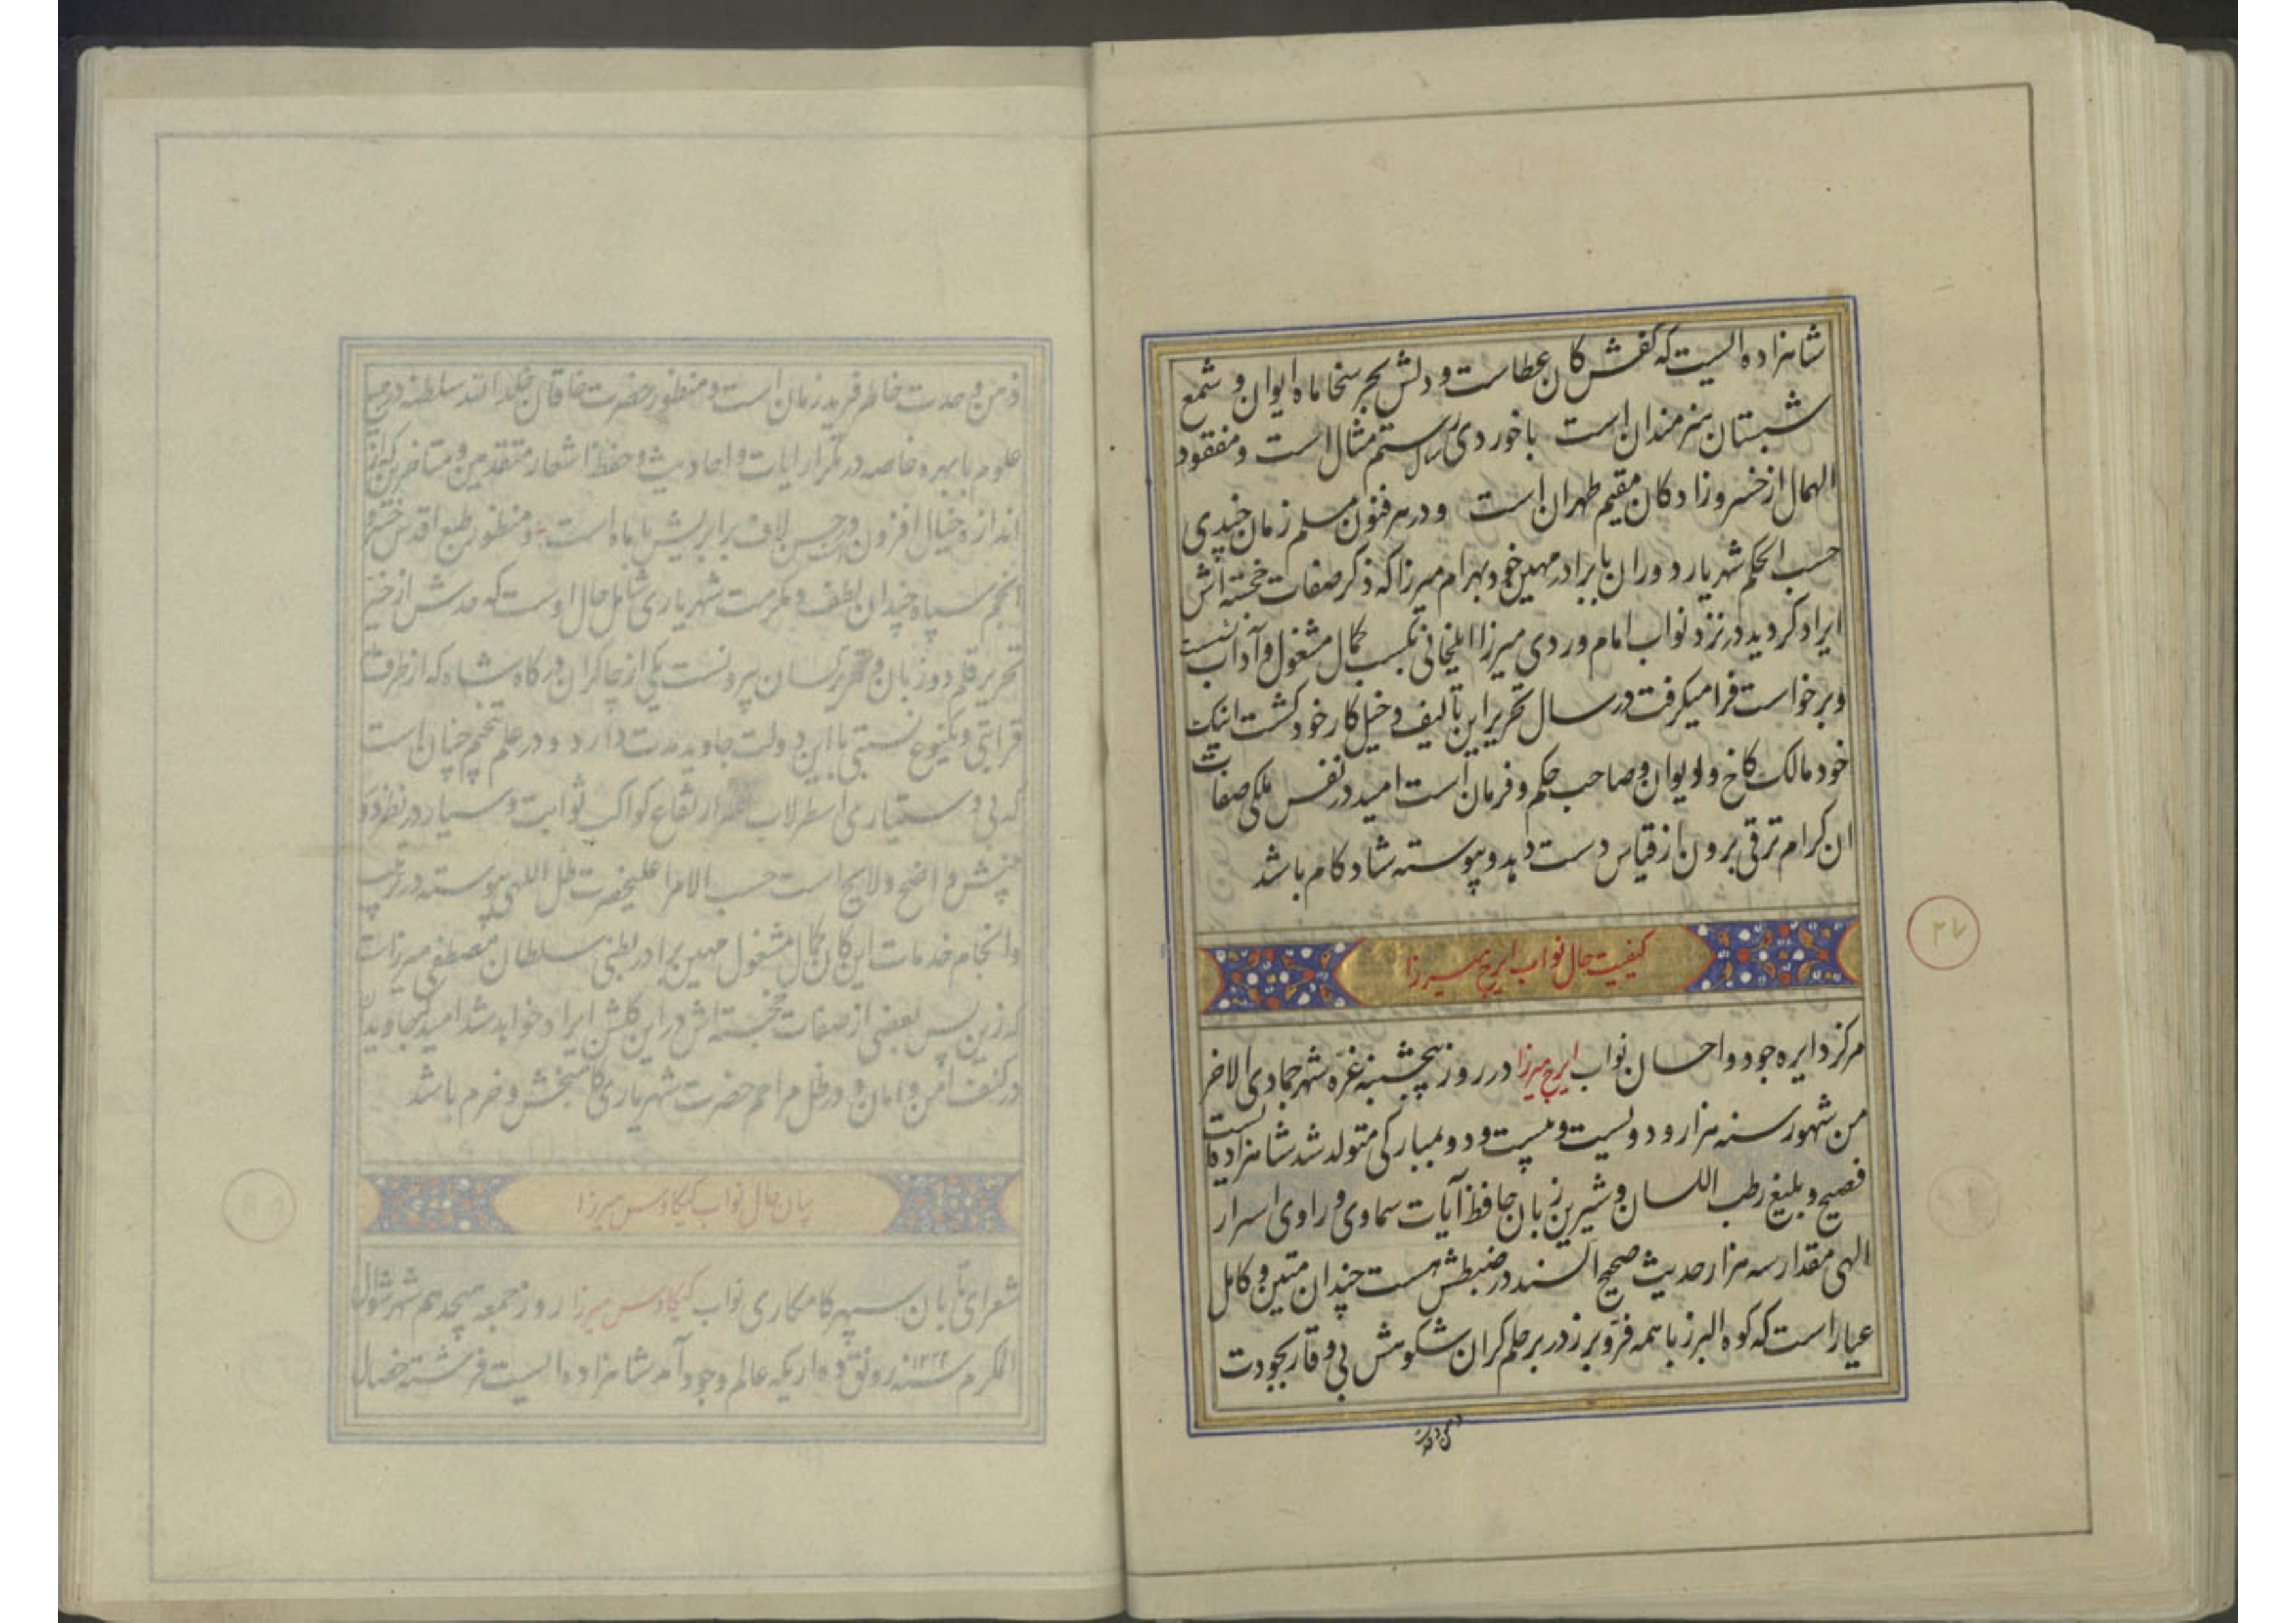 شاهزاده الیست که کفش کان عطاست و دلش بحر سخا ماه ایوان و شمع
شبستان هنرمندان است با خوردی سال رستم مثال است و مفقود
الهمال از خسروزادکان مقیم طهران است و در هر فنون مسلم زمان چندی
حسب الحکم شهریار دوران با برادر مهین خود بهرام میرزا که ذکر صفات خجسته اش
ایراد کردید در نزد نواب امام وردی میرزا ایلخانی بکسب کمال مشغول و آداب نشست
و برخواست فرا میکرفت در سال تحریر این تالیف دخیل کار خود کشت اینک
خود مالک کاخ و ایوان و صاحب حکم و فرمان است امید در نفس ملکی صفات
ان کرام ترقی برون از قیاس دست دهد و پیوسته شاد کام باشد
کیفیت حال نواب ایرج میرزا
۲۷
مرکز دایره جود و احسان نواب ایرج میرزا در روز پنجشنبه غره شهر جمادی الاخر
من شهور سنه هزار و دویست و بیست و دو بمبارکی متولد شد شاهزاده ایست
فصیح و بلیغ رطب اللسان و شیرین زبان حافظ آیات سماوی و راوی اسرار
الهی مقدار سه هزار حدیث صحیح السند در ضبطش هست چندان متین و کامل
عیار است که کوه البرز با همه فر و برز در بر حلم کران شکوهش بی وقار بجودت
ذهن و حدت
ذهن و حدت خاطر فرید زمان است و منظور حضرت خاقان خلد الله سلطنه در جمیع
علوم با بهره خاصه در تکرار ایات و احادیث و حفظ اشعار متقدمین و متاخرین که از
اندازه خیال افزون و در حسن لاف برابریش با ماه است و منظور طبع اقدس خسرو
انجم سپاه چندان لطف و مکرمت شهریاری شامل حال اوست که حدش از حیز
تحریر قلم دو زبان و تقریر لسان بیرونست یکی از چاکران درکاه شاه که از طرف
قرابتی و یکنوع نسبتی با این دولت جاوید مدت دارد و در علم تنجیم چنان است
که بی دستیاری اسطرلاب ارتفاع کواکب ثوابت و سیار در نظر
بینش واضح و لایح است حسب الامر اعلیحضرت ظل اللهی پیوسته در تربیت
و انجام خدمات این کان کمال مشغول مهین برادر بطنی سلطان مصطفی میرزاست
که زین پس بعضی از صفات خجسته اش در این کلشن ایراد خواهد شد امید که جاویدان
در کنف امن و امان و در ظل مراحم حضرت شهریاری کامبخش و خرم باشد
بیان حال نواب کیکاوس میرزا
شعرای تابان سپهر کامکاری نواب کیکاوس میرزا روز جمعه هیجدهم شهر شوال
المکرم سنه ۱۲۲۲ رونق ده اریکه عالم وجود آمد شاهزاده الیست فرشته خصال